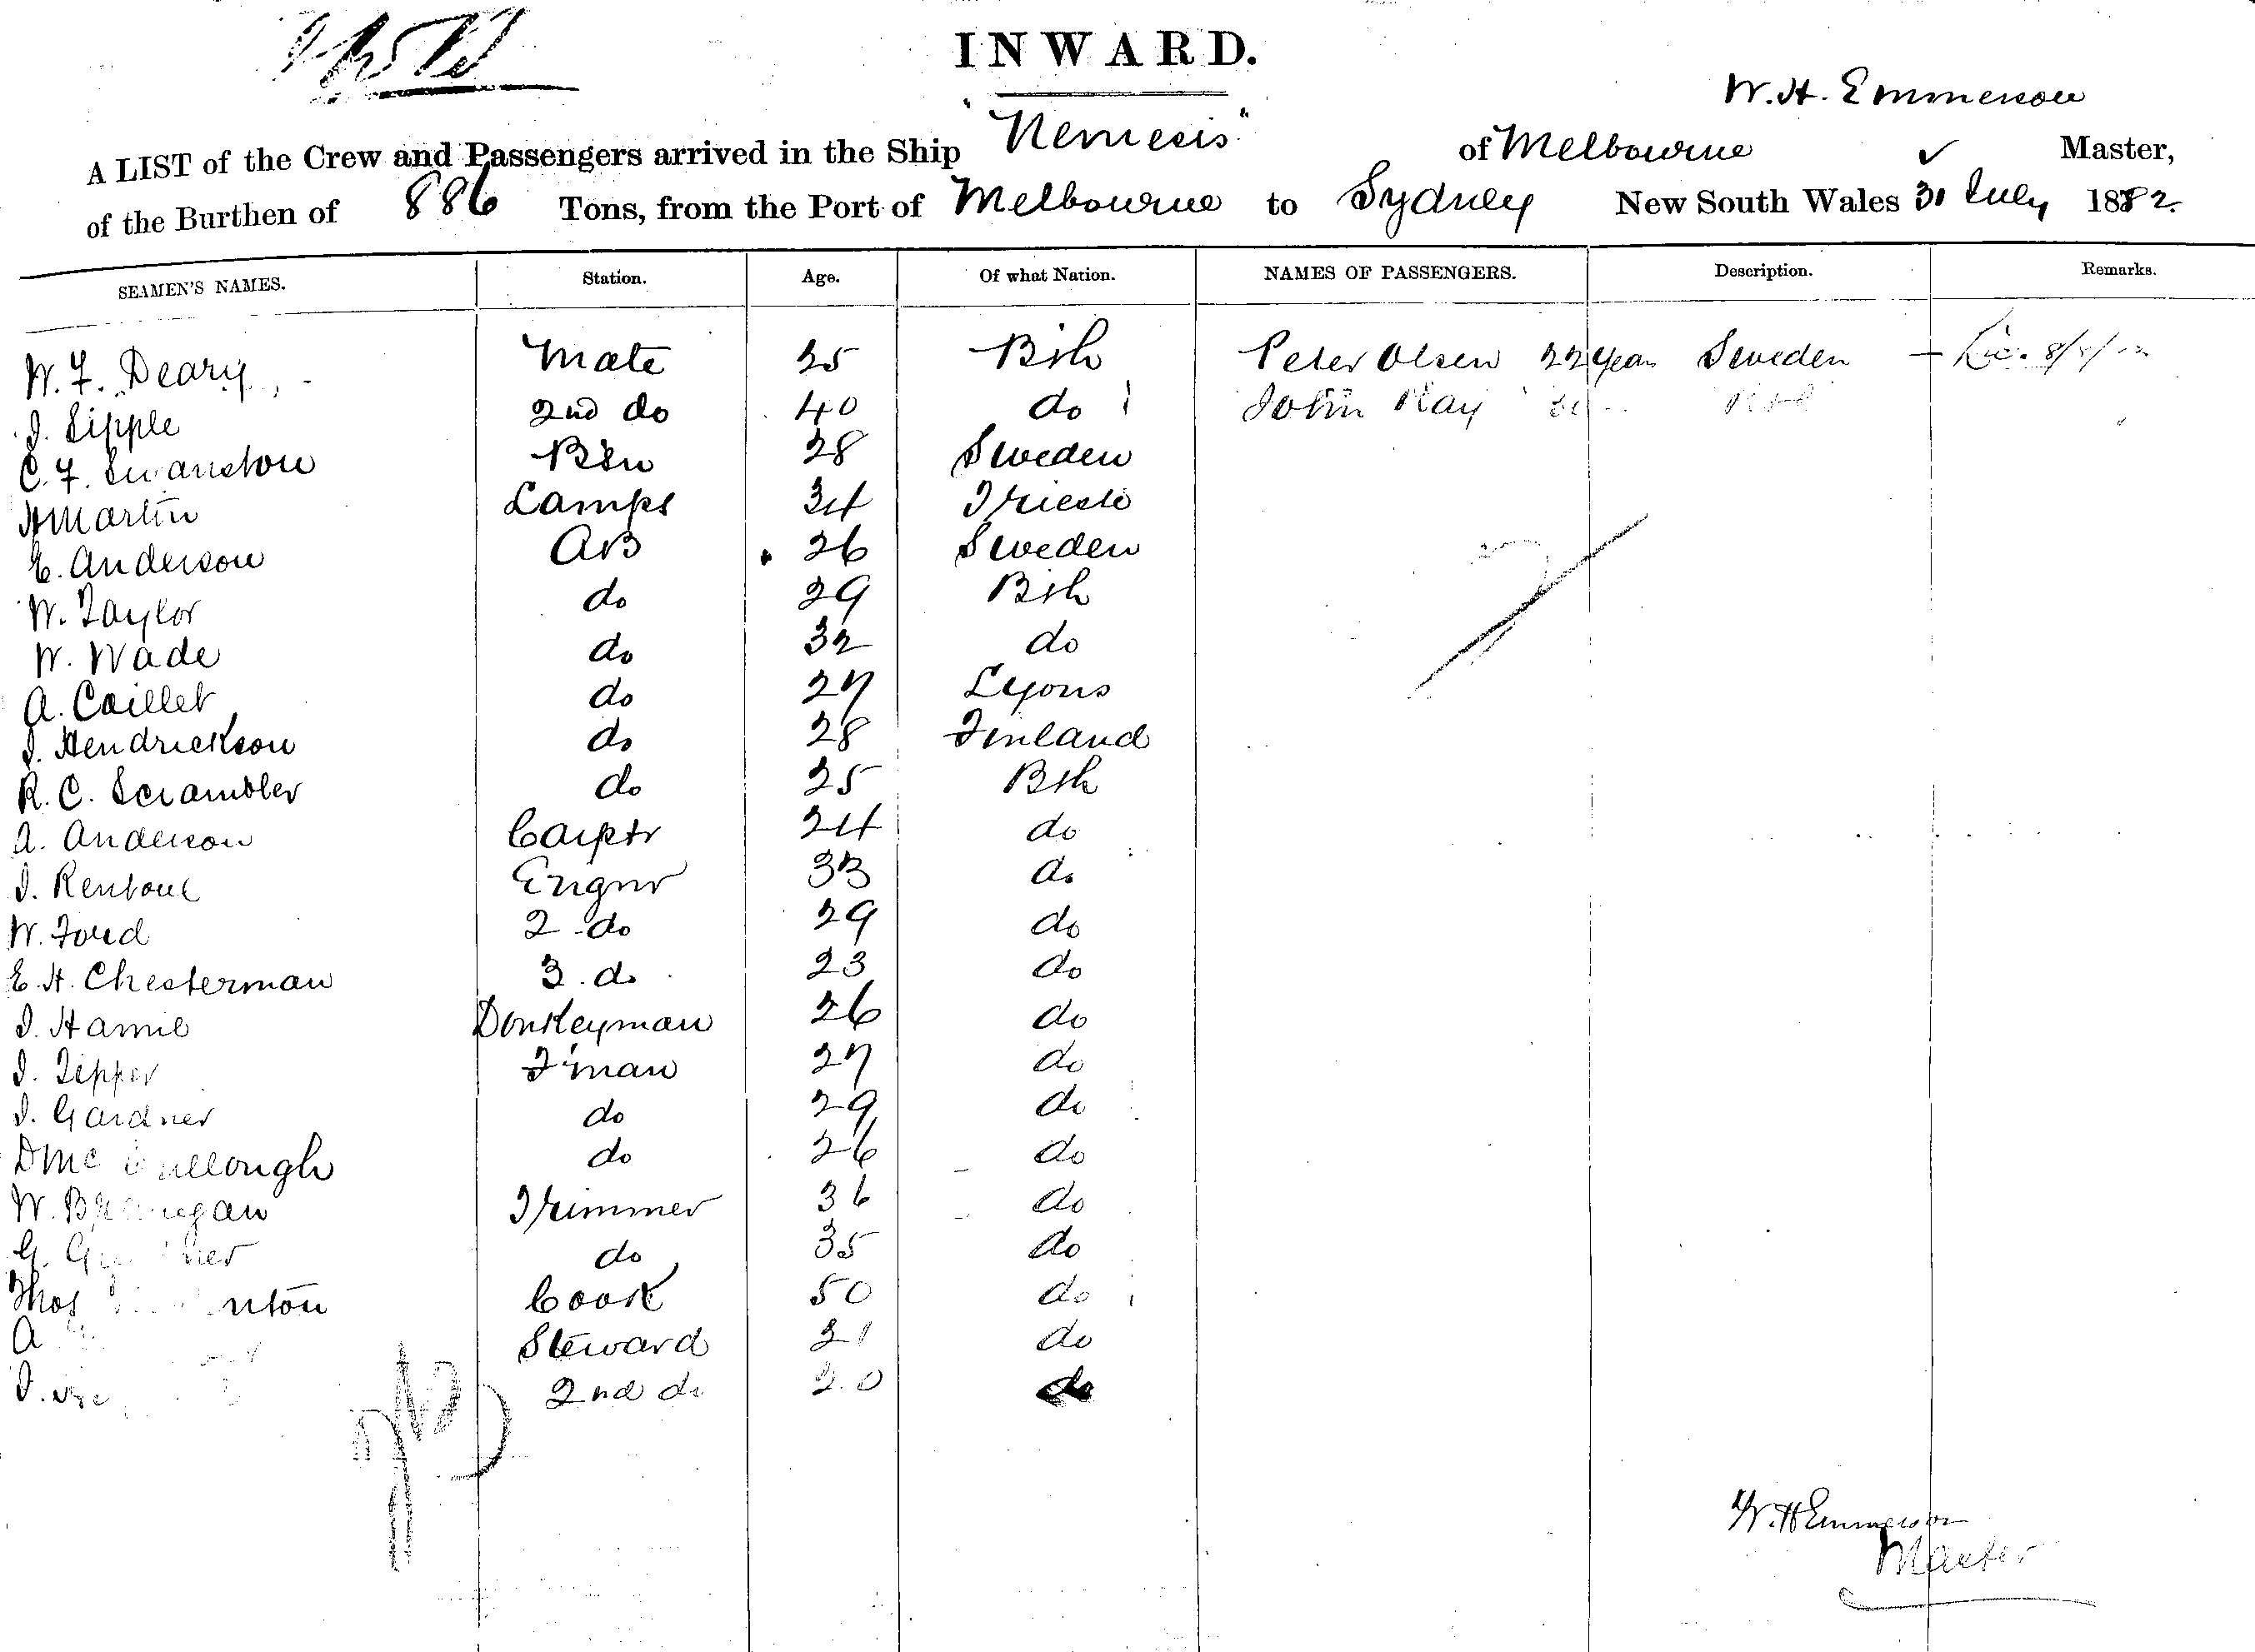 INWARD.
W. H. Emmerson
A LIST of the Crew and Passengers arrived in the Ship "Nemesis" of Melbourne Master,
of the Burthen of 886 Tons, from the Port of Melbourne to Sydney New South Wales 31 July 1882.
SEAMEN'S NAMES. Station. Age. Of what Nation. NAMES OF PASSENGERS. Description. Remarks.
W. F. Deary Mate 25 Bsh Peter Olsen 22 Years Sweden
J. Sipple 2nd do 40 do John Ray
C. F. Swanston Bsn 28 Sweden
H Martin Lamps 34 Trieste
E. Anderson AB 26 Sweden
W. Taylor do 29 Bsh
W. Wade do 32 do
A. Caillet do 27 Lyons
J. Hendrickson do 28 Finland
R. C. Scrambler do 25 Bsh
A. Anderson Carptr 24 do
J. Rentoul Engnr 33 do
W. Ford 2 do 29 do
E. H. Chesterman 3 do 23 do
J. Hamil Donkeyman 26 do
J. Tipper F'man 27 do
J. Gardner do 29 do
D Mc ullough do 26 do
W. Trimmer 36 do
G. do 35 do
Thos Cook 50 do
A Steward 21 do
J. 2nd do 20 do
W. H Emmerson
Master